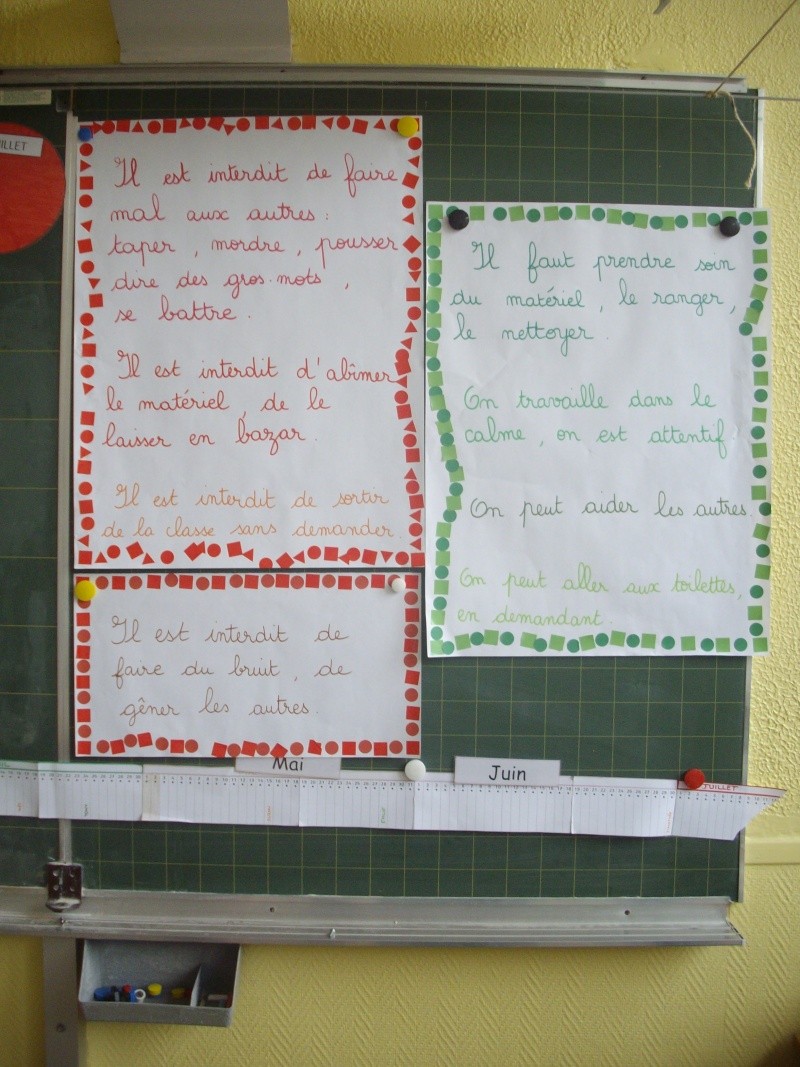 ILLET
Il est interdit de faire
mal aux autres :
taper , mordre , pousser
dire des gros-mots ,
se battre .
Il est interdit d'abîmer
le matériel , de le
laisser en bazar .
Il est interdit de sortir
de la classe sans demander.
Il est interdit de
faire du bruit , de
gêner les autres .
Il faut prendre soin
du matériel , le ranger ,
le nettoyer .
On travaille dans le
calme , on est attentif
On peut aider les autres.
On peut aller aux toilettes,
en demandant.
Mai
Juin
JUILLET